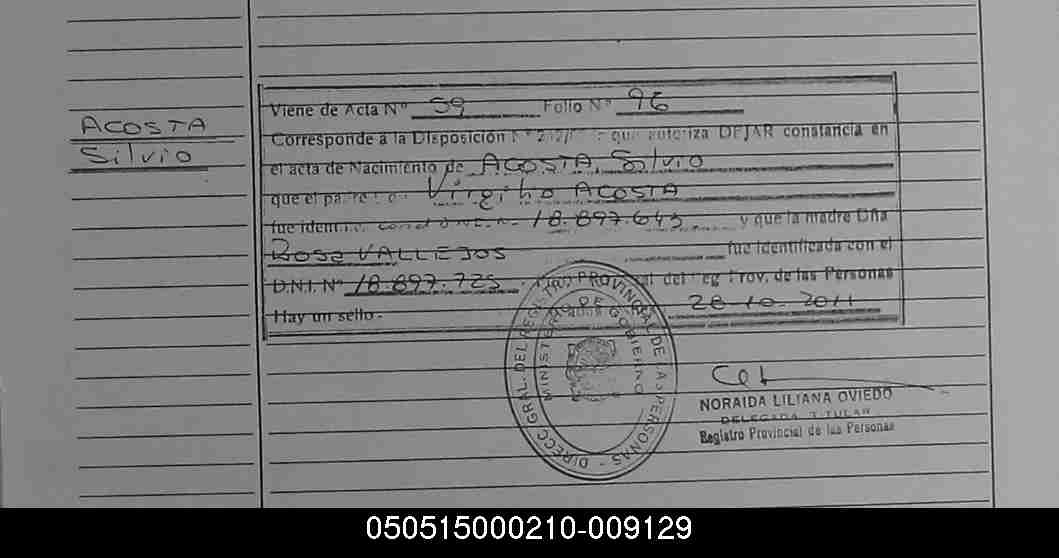 ACOSTA
Silvio
Viene de Acta N° 59 Folio N° 96
Corresponde a la Disposición que autoriza DEJAR constancia en
el acta de Nacimiento de ACOSTA, Silvio
que el padre Virgilio ACOSTA
fue 18.897.643 y que la madre Dña
Rosa VALLEJOS fue identificada con el
D.N.I. N° 18.897.725 del Reg Prov. de las Personas
Hay un sello.- 28-10-2011
DIRECC GRAL. DEL REGISTRO PROVINCIAL DE LAS PERSONAS
MINISTERIO DE GOBIERNO
NORAIDA LILIANA OVIEDO
DELEGADA TITULAR
Registro Provincial de las Personas
050515000210-009129